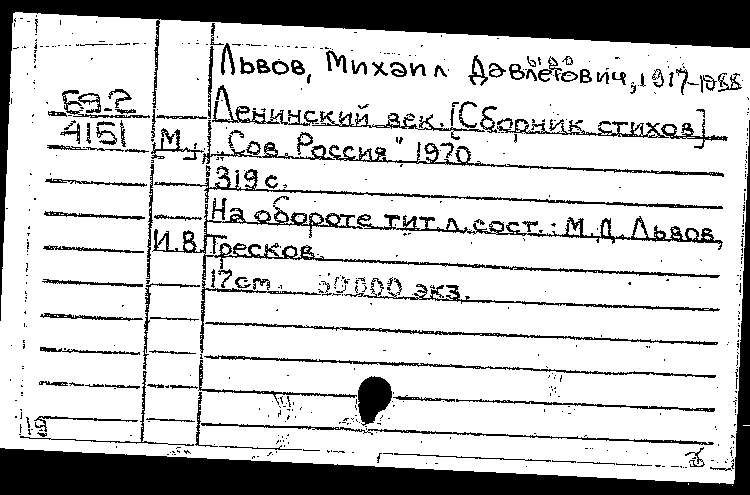 Львов, Михаил Давлетович, 1917-1988
69-2 Ленинский век. [Сборник стихов]
4151 М., „Сов. Россия", 1970.
319 с.
На обороте тит. л. сост.: М.Д. Львов,
И.В. Тресков.
17 см. 50000 экз.
19